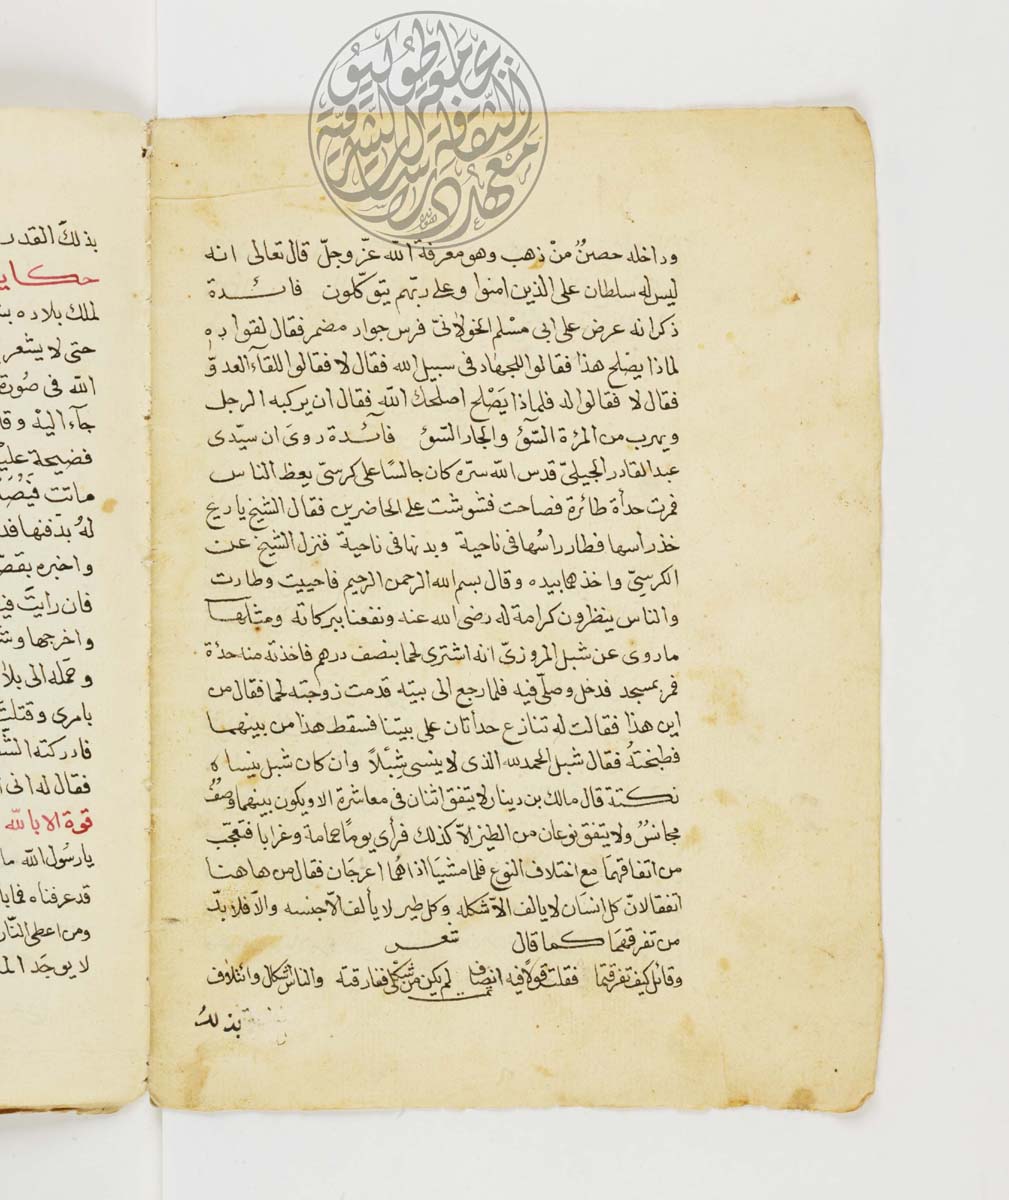 وداخله حصن من ذهب وهو معرفة الله عزّ وجلّ قال تعالى انه
ليس له سلطان على الذين امنوا وعلى ربهم يتوكلون فائدة
ذكر انه عرض على ابى مسلم الخولانىّ فرس جواد مضمر فقال لقواده
لماذا يصلح هذا فقالوا للجهاد فى سبيل الله فقال لا فقالوا للقاء العدوّ
فقال لا فقالوا له فلماذا يصلح اصلحك الله فقال ان يركبه الرجل
ويهرب من المرءة السّوء والجار السّوء فائدة روى ان سيّدى
عبد القادر الجيلىّ قدس الله سرّه كان جالسًا على كرسىّ يعظ الناس
فمرت حدأة طائرة فصاحت فشوشت على الحاضرين فقال الشيخ ياريح
خذ راسها فطار راسُها فى ناحية وبدنها فى ناحية فنزل الشيخ عن
الكرسىّ واخذهما بيده وقال بسم الله الرحمن الرحيم فاحييت وطارت
والناس ينظرون كرامة له رضى الله عنه ونفعنا ببركاته ومثلها
ماروى عن شبل المروزىّ انه اشترى لحما بنصف درهم فاخذته منه حدأة
فمر بمسجد فدخل وصلّى فيه فلما رجع الى بيته قدمت زوجته لحما فقال من
اين هذا فقالت له تنازع حدأتان على بيتنا فسقط هذا من بينهما
فطبخته فقال شبل الحمد لله الذى لاينسى شبلاً وان كان شبل ينساه
نكتة قال مالك بن دينار لايتفق اثنان فى معاشرة الا ويكون بينهما وصفٌ
مجانسٌ ولايتفق نوعان من الطير الاّ كذلك فرأى يومًا حمامة وغرابا فتعجّب
من اتفاقهما مع اختلاف النوع فلما مشيا اذا هُما اعرجان فقال من هاهنا
اتفقا لانّ كل انسان لايالف الاّ شكله وكل طير لايألف الاّ جنسه والّا فلا بدّ
من تفرقهما كما قال شعر
وقائل كيف تفرقتما فقلت قولاً فيه انصاف لم يكن من شكلى ففارقته والناس اشكال وائتلاف
بذلك
بذلك القدر
لملك بلاده
حتى لايشعر
الله فى صُورة
جآء اليه
فضيحة
له بدفنها
واخبره
فان رايت
واخرجها
وحمله الى
بامرى وقتلت
فادركته
فقال له انى
قوة الا بالله
يارسُول الله ما
قد عرفناه
ومن اعطى النّار
لايوجد